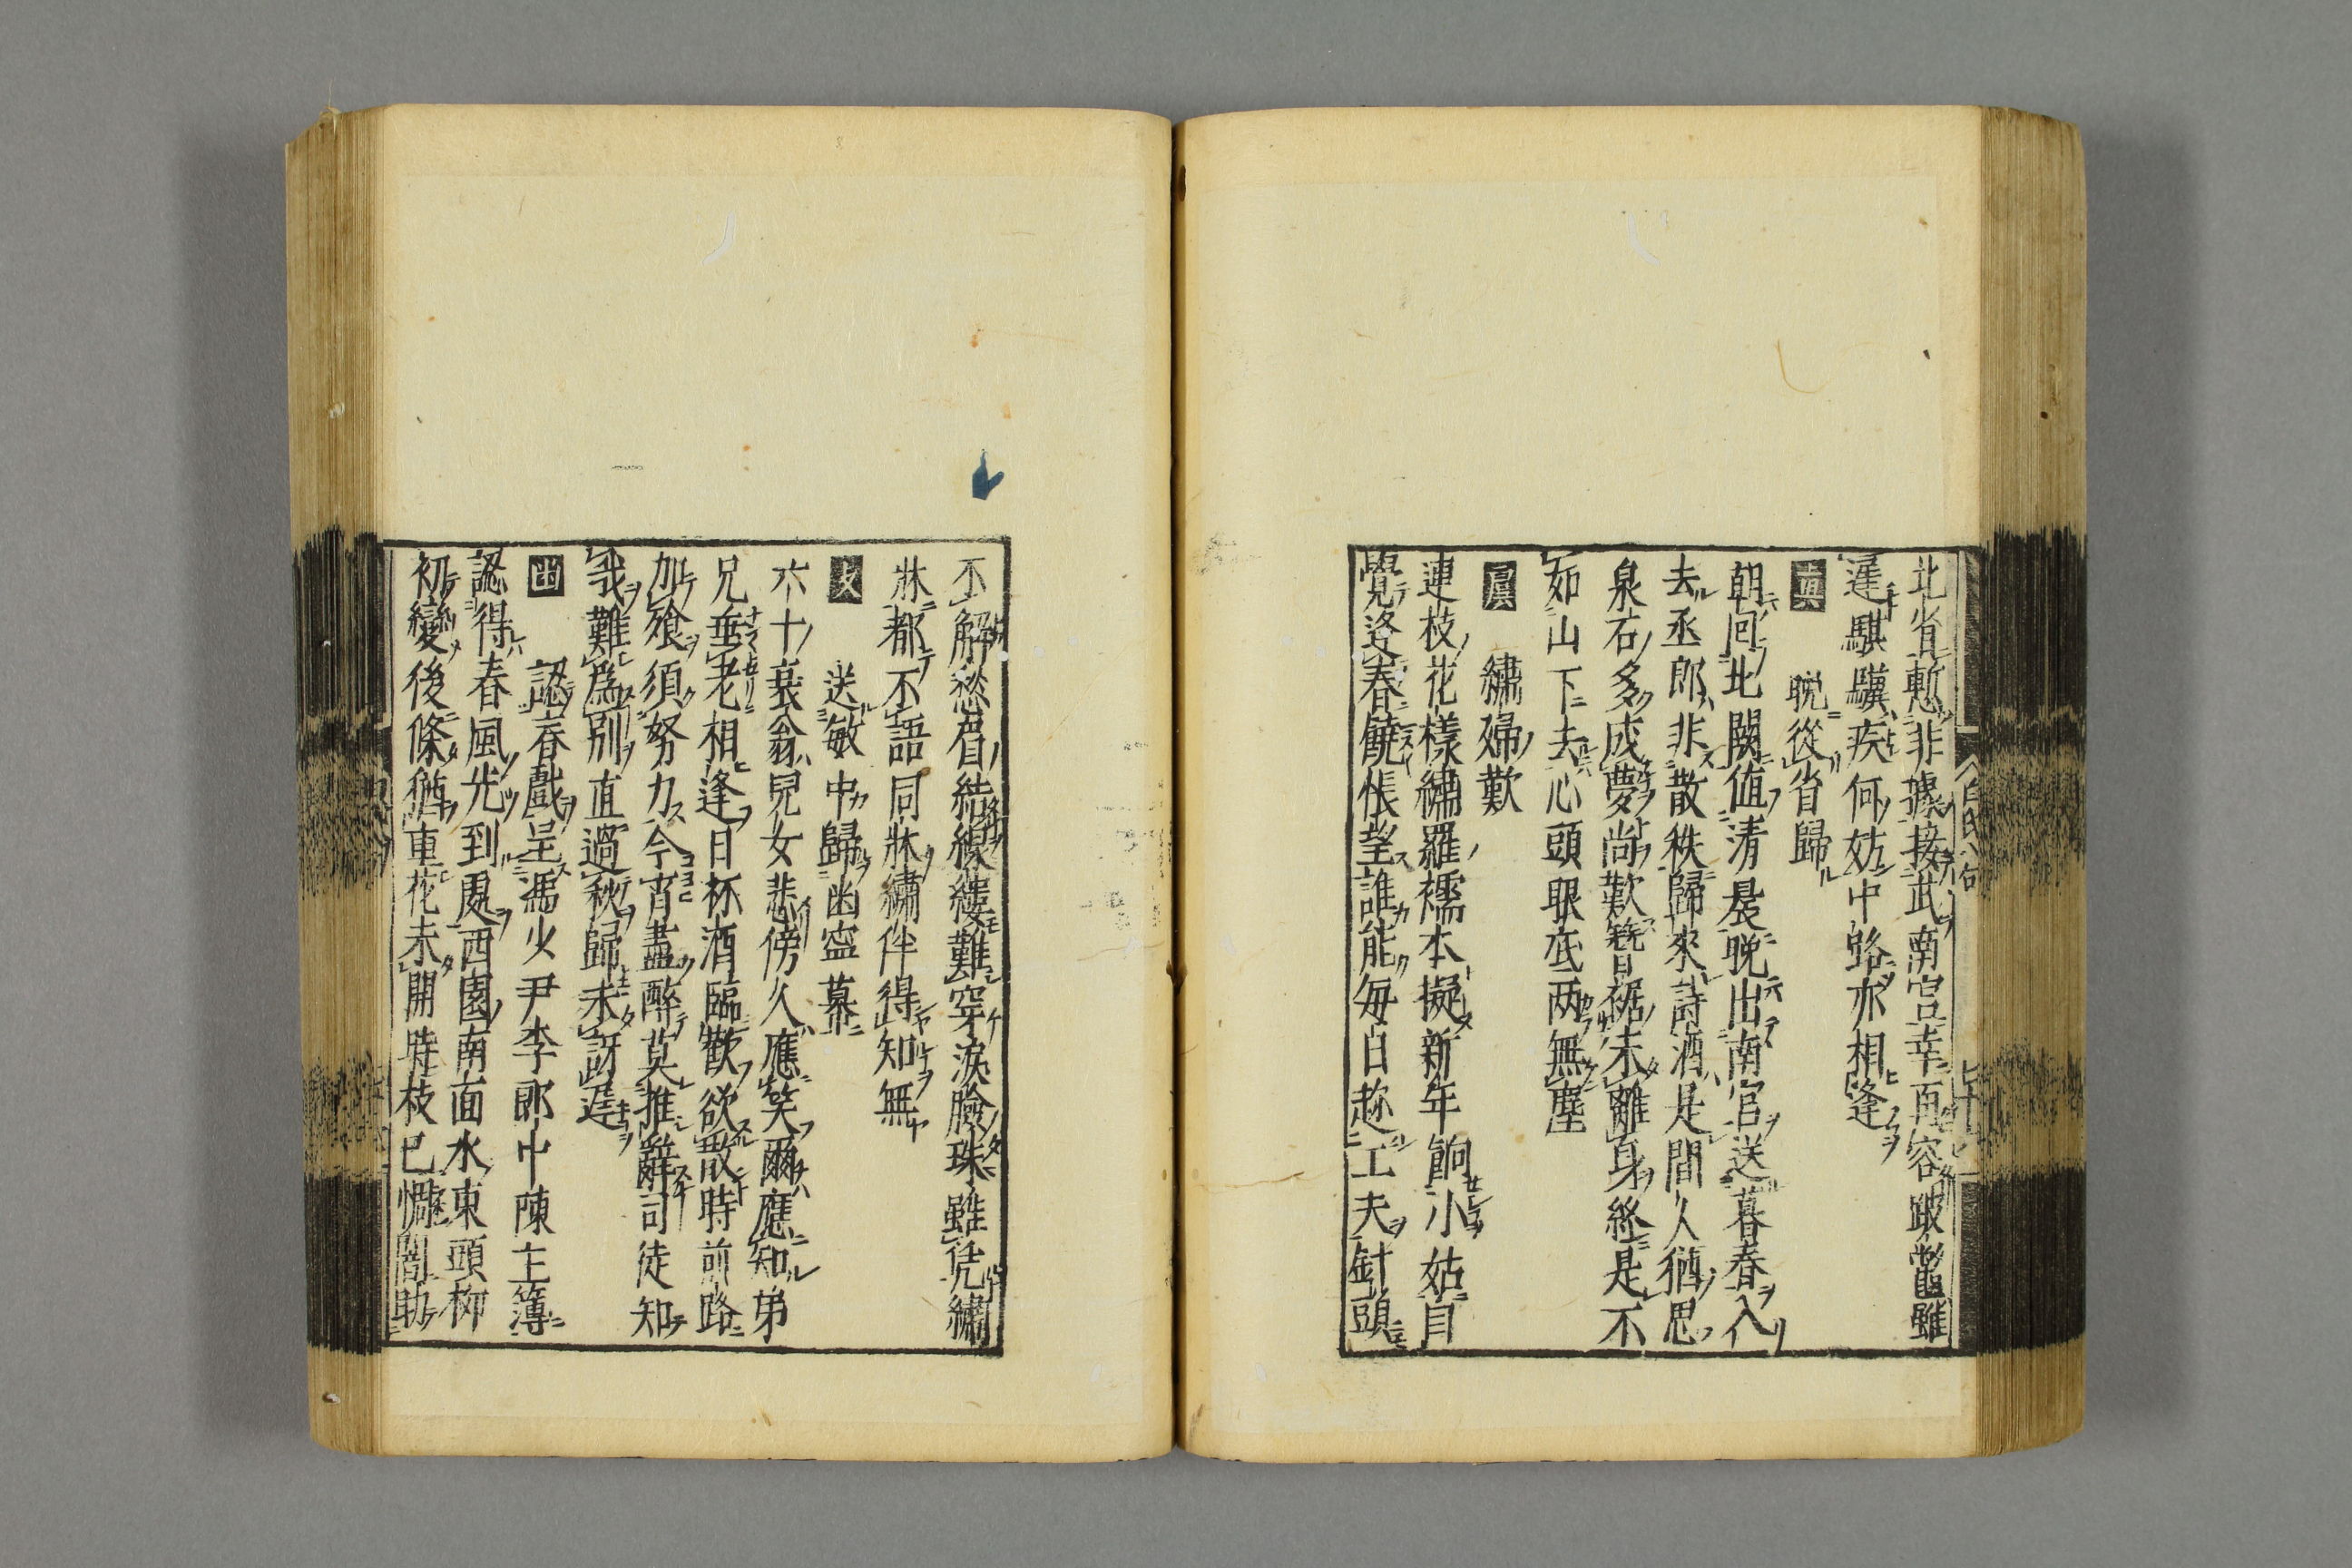 北省慙非據接武南宮幸再容跛鼈雖
遲騏驥疾何妨中路亦相逢
真　晚從省歸
朝回北闕值清晨晚出南宮送暮春入
去丞郎非散秩歸來詩酒是閒人猶思
泉石多成夢尚歎簪裾未離身終是不
如山下去心頭眼底两無塵
虞　繡婦歎
連枝花樣繡羅襦本擬新年餉小姑自
覺逢春饒悵望誰能每日趁工夫針頭
不解愁眉結線縷難穿淚臉珠雖凭繡
牀都不語同牀繡伴得知無
支　送敏中歸豳寧幕
六十衰翁兒女悲傍人應笑爾應知弟
兄垂老相逢日杯酒臨歡欲散時前路
加飡須努力今宵盡醉莫推辭司徒知
我難爲別直過秋歸未訝遲
認春戲呈馮少尹李郎中陳主簿
認得春風光到處西園南面水東頭柳
初變後條猶重花未開時枝已稠闇助